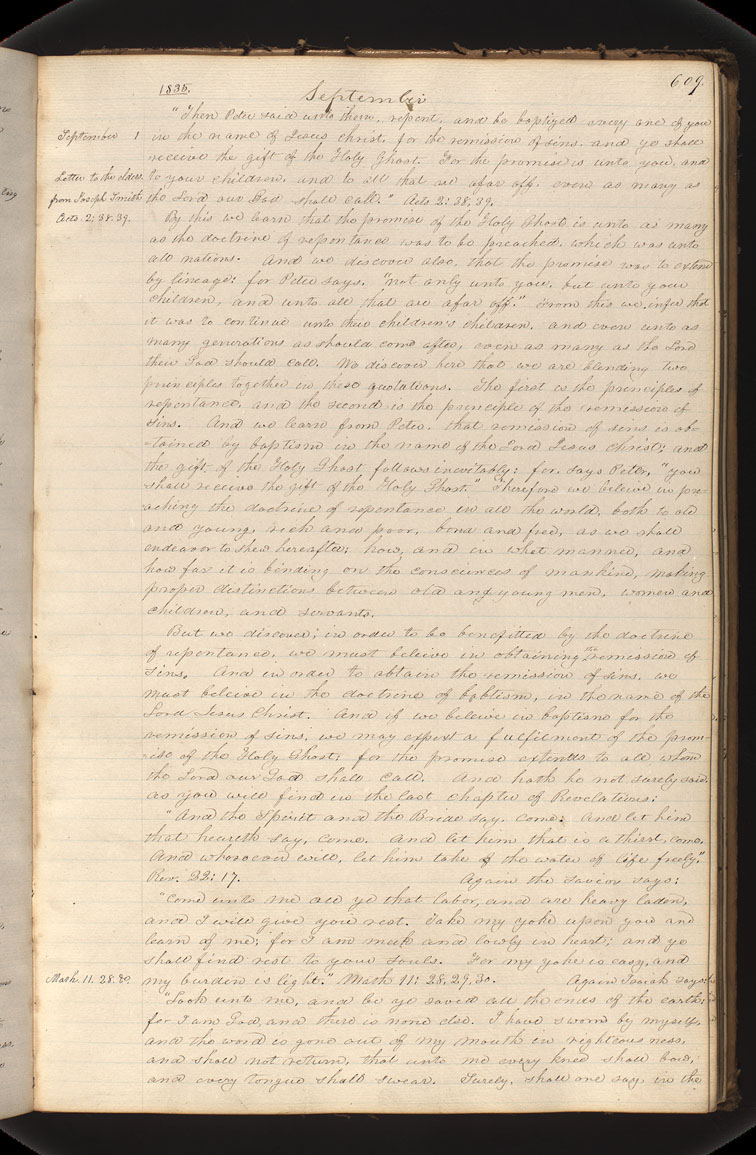 1835.
September
609.
"Then Peter said unto them, repent, and be baptized every one of you
September 1
in the name of Jesus Christ, for the remission of sins, and ye shall
receive the gift of the Holy Ghost. For the promise is unto you, and
Letter to the elders
to your children, and to all that are afar off, even as many as
from Joseph Smith
the Lord our God shall call." Acts 2: 38, 39.
Acts. 2: 38. 39.
By this we learn that the promise of the Holy Ghost is unto as many
as the doctrine of repentance was to be preached, which was unto
all nations. And we discover also, that the promise was to extend
by lineage: for Peter says, "not only unto you, but unto your
children, and unto all that are afar off." From this we infer that
it was to continue unto their children's children, and even unto as
many generations as should come after, even as many as the Lord
their God should call. We discover here that we are blending two
principles together in these quotations. The first is the principles of
repentance, and the second is the principle of the remission of
sins. And we learn from Peter, that remission of sins is ob-
-tained by baptism in the name of the Lord Jesus Christ; and
the gift of the Holy Ghost follows inevitably: for, says Peter, "you
shall receive the gift of the Holy Ghost." Therefore we beleive in pre-
aching the doctrine of repentance in all the world, both to old
and young, rich and poor, bond and free, as we shall
endeavor to shew hereafter; how, and in what manner, and
how far it is binding on the consciences of mankind, making
proper distinctions between old and young men, women and
children, and servants.
But we discover; in order to be benefitted by the doctrine
of repentance, we must beleive in obtaining the remission of
sins. And in order to obtain the remission of sins, we
must beleive in the doctrine of babtism, in the name of the
Lord Jesus Christ. And if we beleive in baptism for the
remission of sins, we may expect a fulfilment of the prom-
-ise of the Holy Ghost; for the promise extends to all whom
the Lord our God shall call. And hath he not surely said
as you will find in the last chapter of Revelations:
"And the Spirit and the Bride say, come; And let him
that heareth say, come. And let him that is athirst, come.
And whosoever will, let him take of the water of life freely."
Rev. 22: 17. Again the savior says:
"Come unto me all ye that labor, and are heavy laden,
and I will give you rest. Take my yoke upon you and
learn of me; for I am meek and lowly in heart; and ye
shall find rest to your souls. For my yoke is easy, and
Math. 11. 28. 30.
my burden is light." Math 11: 28, 29, 30. Again Isaiah says:
"Look unto me, and be ye saved all the ends of the earth;
for I am God, and there is none else. I have sworn by myself,
and the word is gone out of my mouth in righteousness,
and shall not return, that unto me every knee shall bow,
and every tongue shall swear. Surely, shall one say, in the